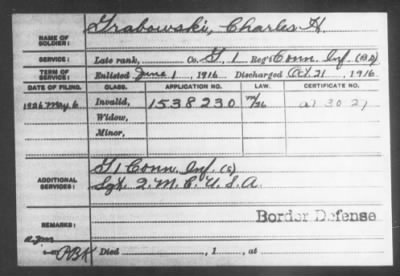 NAME OF SOLDIER: Grabowski, Charles H.
SERVICE: Late rank, Co. G. 1 Reg't Conn. Inf. (BD)
TERM OF SERVICE: Enlisted June 1, 1916. Discharged Oct. 21, 1916.
DATE OF FILING. CLASS. APPLICATION NO. LAW. CERTIFICATE NO.
1926 May 6 Invalid, 1538230
Widow,
Minor,
ADDITIONAL SERVICES: G 1 Conn. Inf.
Sgt. Q. M. C. U. S. A.
Border Defense
REMARKS:
PBK Died , 1 , at